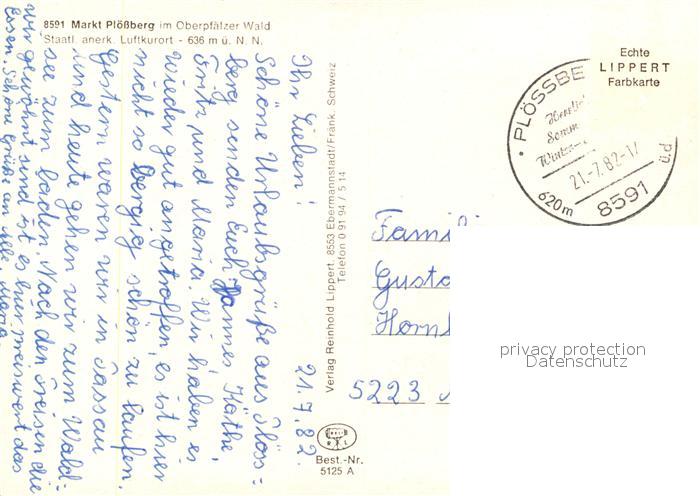 8591 Markt Plößberg im Oberpfälzer Wald
Staatl. anerk. Luftkurort - 636 m ü. N. N.
21.7.82.
Ihr Lieben!
Schöne Urlaubsgrüße aus Plös=
berg senden Euch Hannes Käthe,
Fritz und Maria. Wir haben es
wieder gut angetroffen, es ist hier
nicht so bergig schön zu laufen.
Gestern waren wir in Passau
und heute gehen wir zum Wald-
see zum baden. Nach den Preisen die
wir gewöhnt sind ist es hier preiswert das
Essen. Schöne Grüße an alle. Maria
Verlag Reinhold Lippert, 8553 Ebermannstadt/Fränk. Schweiz
Telefon 0 91 94 / 5 14
RKL
Best.-Nr.
5125 A
Echte
LIPPERT
Farbkarte
PLÖSSBE
21.-7.82-17
620m
8591
Fami
Gusta
Horn
5223
privacy protection
Datenschutz